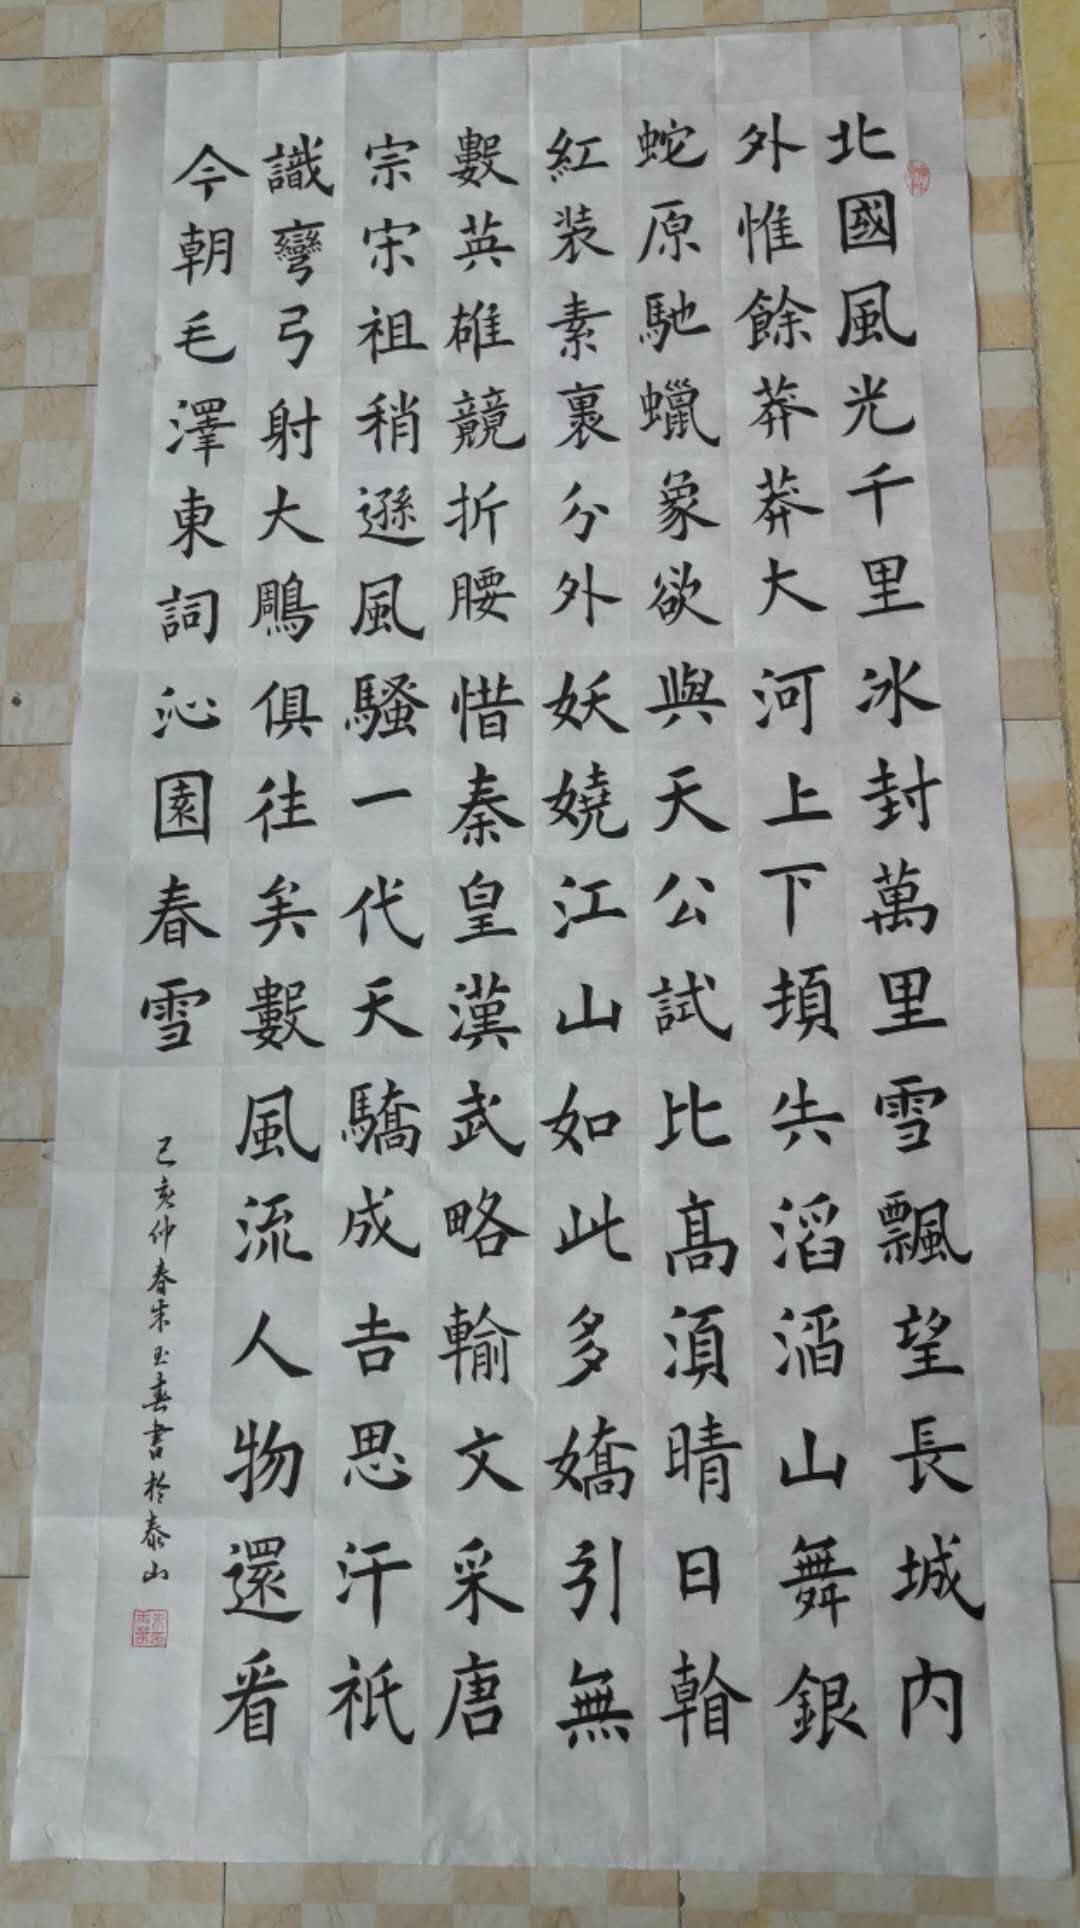 北國風光千里冰封萬里雪飄望長城内
外惟餘莽莽大河上下頓失滔滔山舞銀
蛇原馳蠟象欲與天公試比高須晴日看
紅装素裹分外妖嬈江山如此多嬌引無
數英雄競折腰惜秦皇漢武略輸文采唐
宗宋祖稍遜風騷一代天驕成吉思汗祇
識彎弓射大鵰俱往矣數風流人物還看
今朝毛澤東詞沁園春雪
己亥仲春朱玉春書於泰山